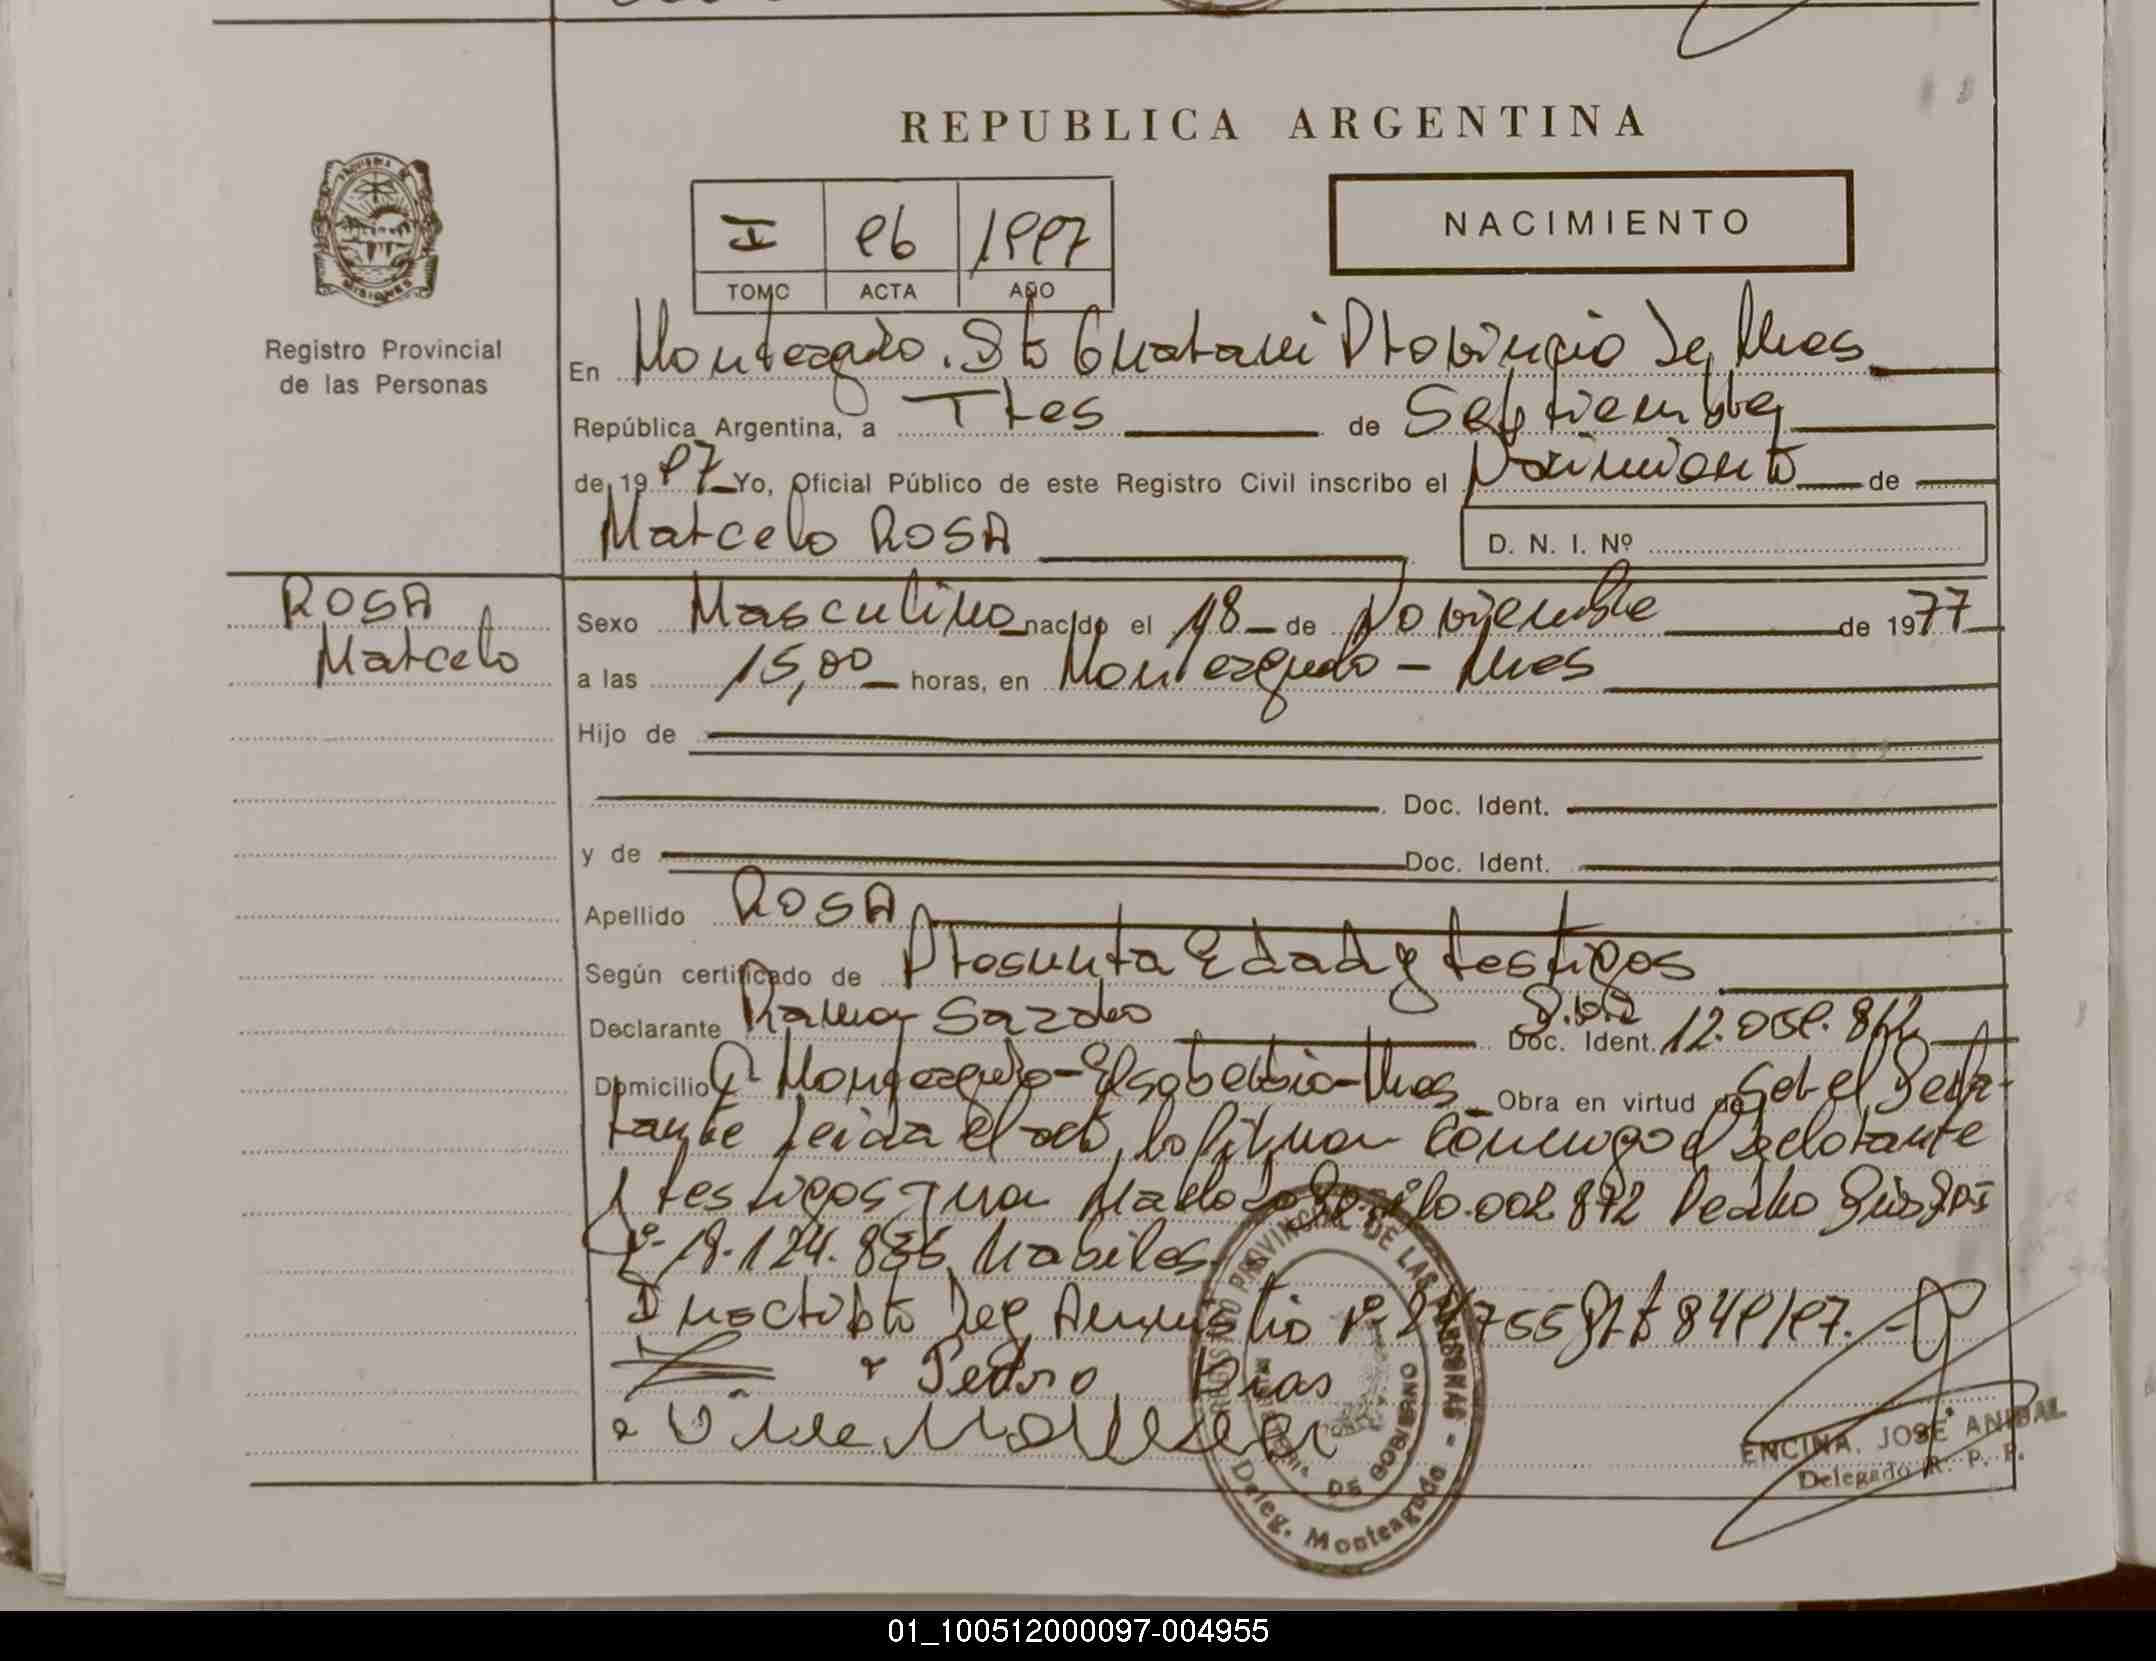 REPUBLICA ARGENTINA
NACIMIENTO
I 96 1997
TOMO ACTA AÑO
PROVINCIA DE MISIONES
Registro Provincial
de las Personas
En Monteagudo. Dto Guarani Provincia de Mnes
República Argentina, a Tres de Septiembre
de 1997 Yo, Oficial Público de este Registro Civil inscribo el Nacimiento de
Marcelo ROSA
D. N. I. Nº
ROSA
Marcelo
Sexo Masculino nacido el 18 de Noviembre de 1977
a las 15,00 horas, en Monteagudo - Mnes
Hijo de
Doc. Ident.
y de Doc. Ident.
Apellido ROSA
Según certificado de Presunta Edad y testigos
Declarante Ramon Doc. Ident. 12.059.
Domicilio Monteagudo - Mnes Obra en virtud de Ser el Decla-
rante Leida el acta, la firman conmigo el declarante
y testigos 872 Pedro
Nº habiles
Inscripto Ley Amnistia Nº 24755 849/97.
Pedro
REGISTRO PROVINCIAL DE LAS PERSONAS -
MINISTERIO DE GOBIERNO
Deleg. Monteagudo
ENCINA, JOSE ANIBAL
Delegado R. P. P.
01_100512000097-004955